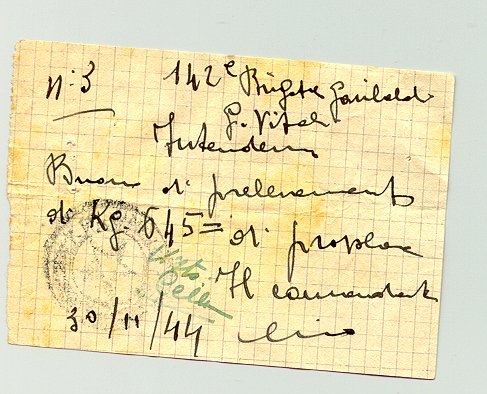 n. 3 142ª Brigata Garibaldi
G. Vitali
Intendenza
Buono di prelevamento
di Kg. 645 = di
Visto
Il comandante
30/11/44